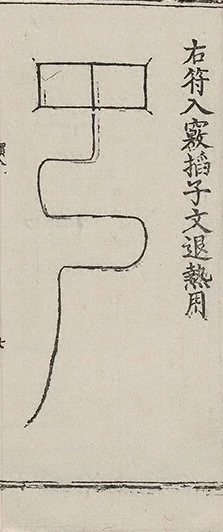 右符入竅搯子文退熱用